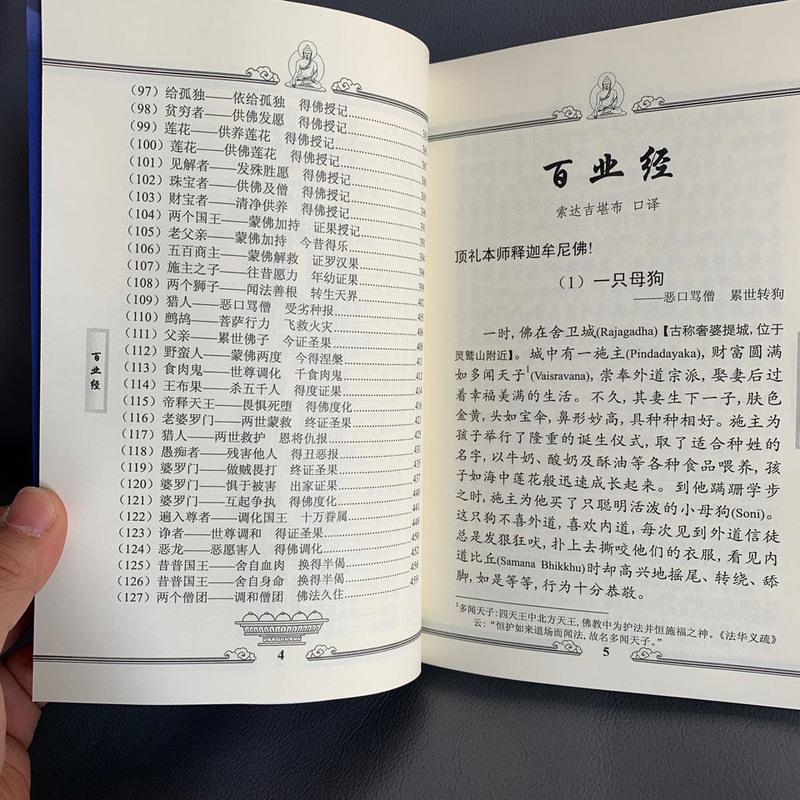 (97) 给孤独——依给孤独 得佛授记
(98) 贫穷者——供佛发愿 得佛授记
(99) 莲花——供养莲花 得佛授记
(100) 莲花——供佛莲花 得佛授记
(101) 见解者——发殊胜愿 得佛授记
(102) 珠宝者——供佛及僧 得佛授记
(103) 财宝者——清净供养 得佛授记
(104) 两个国王——蒙佛加持 证果授记
(105) 老父亲——蒙佛加持 今昔得乐
(106) 五百商主——蒙佛解救 证罗汉果
(107) 施主之子——往昔恶力 年幼证果
(108) 两个狮子——闻法善根 转生天界
(109) 猎人——恶口骂僧 受劣种报
(110) 鹧鸪——菩萨行力 飞救火灾
(111) 父亲——累世佛子 今证圣果
(112) 野蛮人——蒙佛两度 今得涅槃
(113) 食肉鬼——世尊调化 千食肉鬼
(114) 王布果——杀五千人 得度证果 414
(115) 帝释天王——畏惧死堕 得佛度化 416
(116) 老婆罗门——两世蒙救 终证圣果
(117) 猎人——两世救护 恩将仇报 425
(118) 愚痴者——残害他人 得丑恶报
(119) 婆罗门——做贼畏打 终证圣果
(120) 婆罗门——惧于被害 出家证果
(121) 婆罗门——互起争执 得佛度化
(122) 遍入尊者——调化国王 十万眷属 447
(123) 诤者——世尊调和 得证圣果
(124) 恶龙——恶愿害人 得佛调化
(125) 昔普国王——舍自血肉 换得半偈 456
(126) 昔普国王——舍自身命 换得半偈 459
(127) 两个僧团——调和僧团 佛法久住
百业经
4
百业经
索达吉堪布 口译
顶礼本师释迦牟尼佛!
(1) 一只母狗
——恶口骂僧 累世转狗
一时, 佛在舍卫城(Rajagadha)【古称奢婆提城, 位于
灵鹫山附近】。城中有一施主(Pindadayaka), 财富圆满
如多闻天子¹(Vaisravana), 崇奉外道宗派, 娶妻后过
着幸福美满的生活。不久, 其妻生下一子, 肤色
金黄, 头如宝伞, 鼻形妙高, 具种种相好。施主为
孩子举行了隆重的诞生仪式, 取了适合种姓的
名字, 以牛奶、酸奶及酥油等各种食品喂养, 孩
子如海中莲花般迅速成长起来。到他蹒跚学步
之时, 施主为他买了只聪明活泼的小母狗(Soni)。
这只狗不喜外道, 喜欢内道, 每次见到外道信徒
总是发狠狂吠, 扑上去撕咬他们的衣服, 看见内
道比丘(Samana Bhikkhu)时却高兴地摇尾、转绕、舔
脚, 如是等等, 行为十分恭敬。
¹多闻天子: 四天王中北方天王, 佛教中为护法并恒施福之神。《法华义疏》
云: “恒护如来道场而闻法, 故名多闻天子。”
5